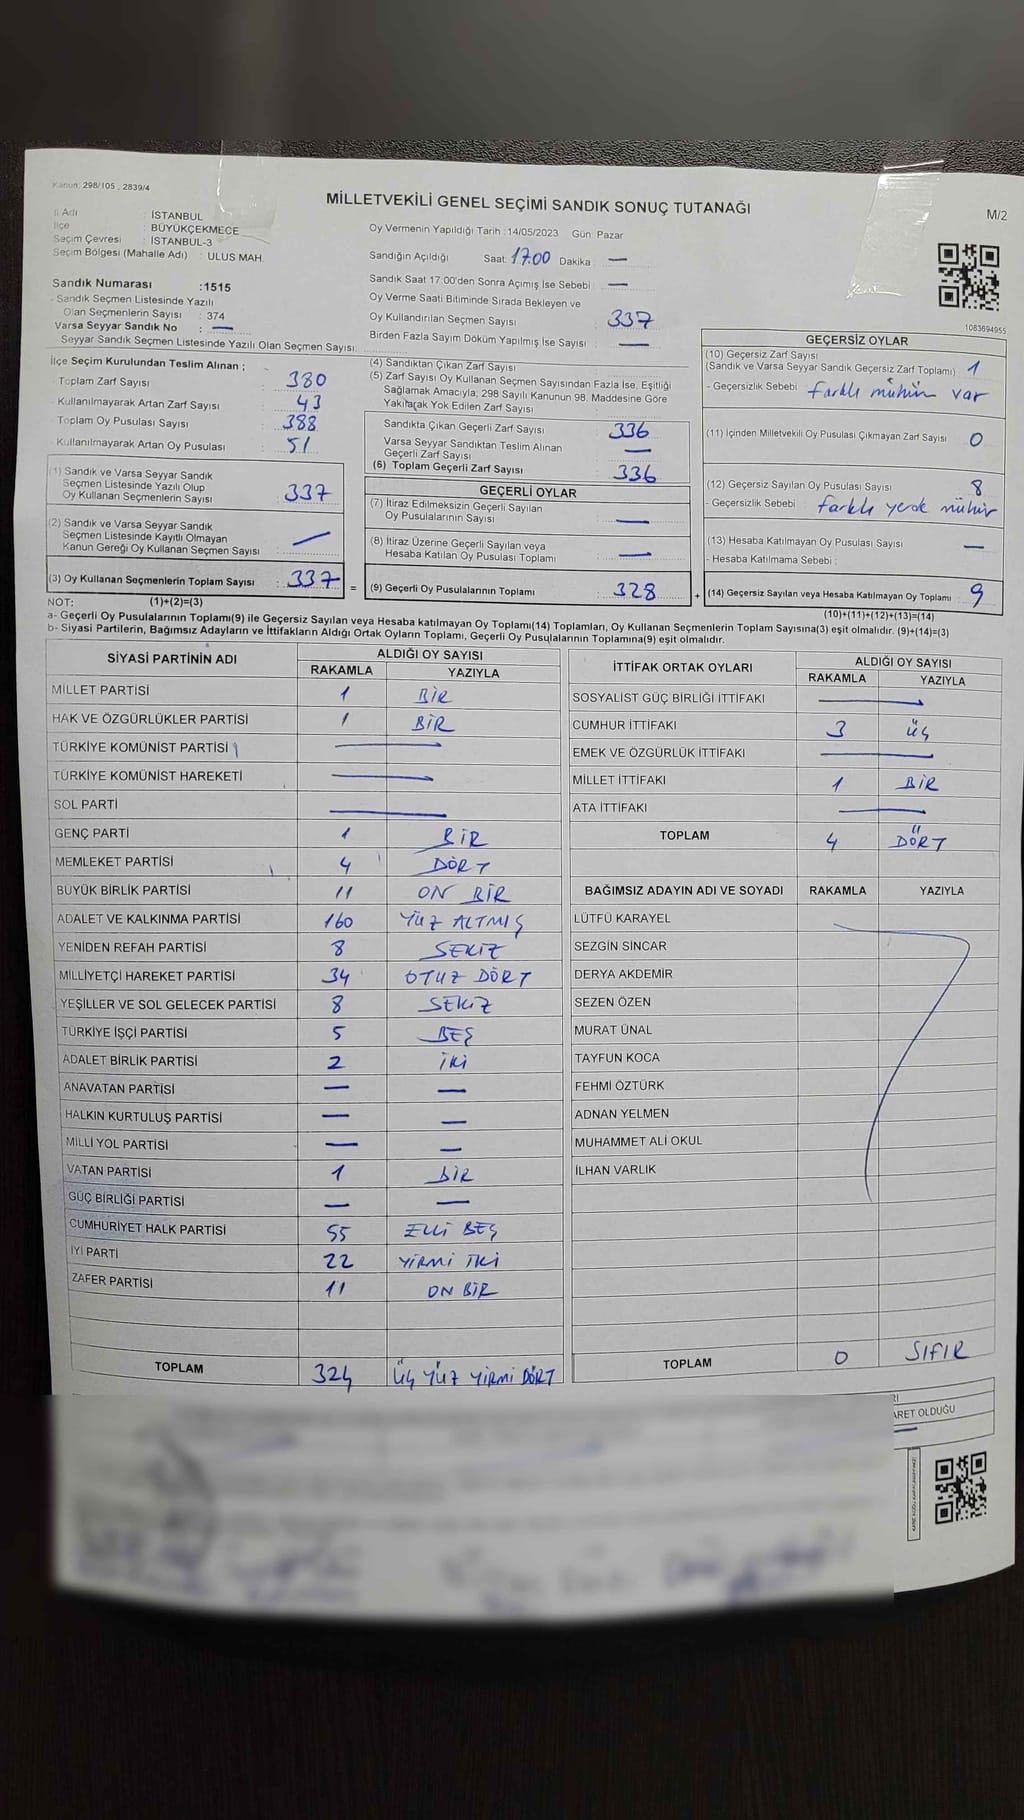 Kanun: 298/105 , 2839/4
MİLLETVEKİLİ GENEL SEÇİMİ SANDIK SONUÇ TUTANAĞI
M/2
İl Adı : İSTANBUL
İlçe : BÜYÜKÇEKMECE
Seçim Çevresi : İSTANBUL-3
Seçim Bölgesi (Mahalle Adı) : ULUS MAH.
Sandık Numarası :1515
- Sandık Seçmen Listesinde Yazılı
Olan Seçmenlerin Sayısı : 374
Varsa Seyyar Sandık No : —
Seyyar Sandık Seçmen Listesinde Yazılı Olan Seçmen Sayısı:
Oy Vermenin Yapıldığı Tarih :14/05/2023 Gün: Pazar
Sandığın Açıldığı Saat: 17.00 Dakika : —
Sandık Saat 17:00'den Sonra Açımış İse Sebebi : —
Oy Verme Saati Bitiminde Sırada Bekleyen ve
Oy Kullandırılan Seçmen Sayısı : 337
Birden Fazla Sayım Döküm Yapılmış İse Sayısı : —
1083694955
İlçe Seçim Kurulundan Teslim Alınan ;
- Toplam Zarf Sayısı : 380
- Kullanılmayarak Artan Zarf Sayısı : 43
Toplam Oy Pusulası Sayısı : 388
- Kullanılmayarak Artan Oy Pusulası : 51
(1) Sandık ve Varsa Seyyar Sandık
Seçmen Listesinde Yazılı Olup
Oy Kullanan Seçmenlerin Sayısı : 337
(2) Sandık ve Varsa Seyyar Sandık
Seçmen Listesinde Kayıtlı Olmayan
Kanun Gereği Oy Kullanan Seçmen Sayısı : —
(3) Oy Kullanan Seçmenlerin Toplam Sayısı : 337 =
(4) Sandıktan Çıkan Zarf Sayısı :
(5) Zarf Sayısı Oy Kullanan Seçmen Sayısından Fazla İse, Eşitliği
Sağlamak Amacıyla; 298 Sayılı Kanunun 98. Maddesine Göre
Yakılarak Yok Edilen Zarf Sayısı :
Sandıkta Çıkan Geçerli Zarf Sayısı : 336
Varsa Seyyar Sandıktan Teslim Alınan
Geçerli Zarf Sayısı : —
(6) Toplam Geçerli Zarf Sayısı : 336
GEÇERLİ OYLAR
(7) İtiraz Edilmeksizin Geçerli Sayılan
Oy Pusulalarının Sayısı : —
(8) İtiraz Üzerine Geçerli Sayılan veya
Hesaba Katılan Oy Pusulası Toplamı : —
(9) Geçerli Oy Pusulalarının Toplamı : 328 +
GEÇERSİZ OYLAR
(10) Geçersiz Zarf Sayısı
(Sandık ve Varsa Seyyar Sandık Geçersiz Zarf Toplamı) : 1
- Geçersizlik Sebebi : farklı mühür var
(11) İçinden Milletvekili Oy Pusulası Çıkmayan Zarf Sayısı : 0
(12) Geçersiz Sayılan Oy Pusulası Sayısı : 8
- Geçersizlik Sebebi : farklı yerde mühür
(13) Hesaba Katılmayan Oy Pusulası Sayısı : —
- Hesaba Katılmama Sebebi :
(14) Geçersiz Sayılan veya Hesaba Katılmayan Oy Toplamı : 9
NOT: (1)+(2)=(3) (10)+(11)+(12)+(13)=(14)
a- Geçerli Oy Pusulalarının Toplamı(9) ile Geçersiz Sayılan veya Hesaba katılmayan Oy Toplamı(14) Toplamları, Oy Kullanan Seçmenlerin Toplam Sayısına(3) eşit olmalıdır. (9)+(14)=(3)
b- Siyasi Partilerin, Bağımsız Adayların ve İttifakların Aldığı Ortak Oyların Toplamı, Geçerli Oy Pusulalarının Toplamına(9) eşit olmalıdır.
SİYASİ PARTİNİN ADI ALDIĞI OY SAYISI
RAKAMLA YAZIYLA
MİLLET PARTİSİ 1 BİR
HAK VE ÖZGÜRLÜKLER PARTİSİ 1 BİR
TÜRKİYE KOMÜNİST PARTİSİ —
TÜRKİYE KOMÜNİST HAREKETİ —
SOL PARTİ —
GENÇ PARTİ 1 BİR
MEMLEKET PARTİSİ 4 DÖRT
BÜYÜK BİRLİK PARTİSİ 11 ON BİR
ADALET VE KALKINMA PARTİSİ 160 YÜZ ALTMIŞ
YENİDEN REFAH PARTİSİ 8 SEKİZ
MİLLİYETÇİ HAREKET PARTİSİ 34 OTUZ DÖRT
YEŞİLLER VE SOL GELECEK PARTİSİ 8 SEKİZ
TÜRKİYE İŞÇİ PARTİSİ 5 BEŞ
ADALET BİRLİK PARTİSİ 2 İKİ
ANAVATAN PARTİSİ — —
HALKIN KURTULUŞ PARTİSİ — —
MİLLİ YOL PARTİSİ — —
VATAN PARTİSİ 1 BİR
GÜÇ BİRLİĞİ PARTİSİ — —
CUMHURİYET HALK PARTİSİ 55 ELLİ BEŞ
İYİ PARTİ 22 YİRMİ İKİ
ZAFER PARTİSİ 11 ON BİR
TOPLAM 324 ÜÇ YÜZ YİRMİ DÖRT
İTTİFAK ORTAK OYLARI ALDIĞI OY SAYISI
RAKAMLA YAZIYLA
SOSYALİST GÜÇ BİRLİĞİ İTTİFAKI —
CUMHUR İTTİFAKI 3 ÜÇ
EMEK VE ÖZGÜRLÜK İTTİFAKI —
MİLLET İTTİFAKI 1 BİR
ATA İTTİFAKI —
TOPLAM 4 DÖRT
BAĞIMSIZ ADAYIN ADI VE SOYADI RAKAMLA YAZIYLA
LÜTFÜ KARAYEL
SEZGİN SİNCAR
DERYA AKDEMİR
SEZEN ÖZEN
MURAT ÜNAL
TAYFUN KOCA
FEHMİ ÖZTÜRK
ADNAN YELMEN
MUHAMMET ALİ OKUL
İLHAN VARLIK
TOPLAM 0 SIFIR
ARET OLDUĞU